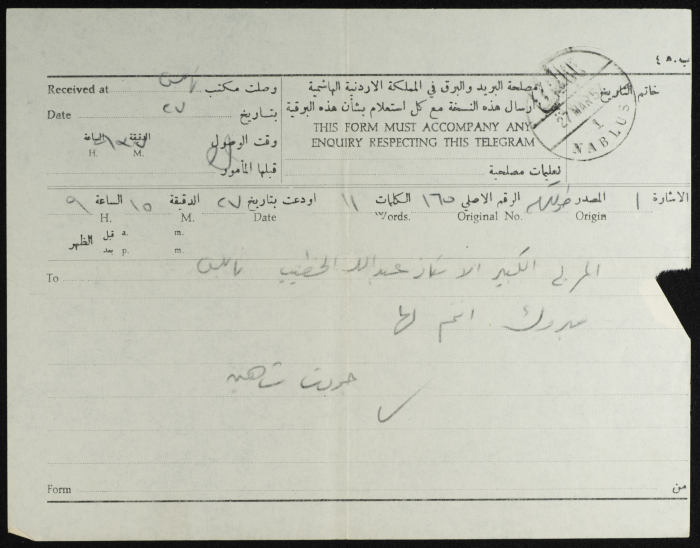 ب. ٤٥
Received at وصلت مكتب نابلس
Date ٢٧ بتاريخ
وقت الوصول الدقيقة الساعة
H. M.
قبلها المأمور
مصلحة البريد والبرق في المملكة الاردنية الهاشمية
ارسال هذه النسخة مع كل استعلام بشأن هذه البرقية
THIS FORM MUST ACCOMPANY ANY
ENQUIRY RESPECTING THIS TELEGRAM
تعليمات مصلحية
خاتم التاريخ
27 MAR
1
NABLUS
الاشارة ١ المصدر طولكرم الرقم الاصلي ١٦٥ الكلمات ١١ اودعت بتاريخ ٢٧ الدقيقة ١٥ الساعة ٩
Origin Original No. Words. Date M. H.
الظهر قبل a. m.
بعد p. m.
To المربي الكبير الاستاذ عبد الله الخطيب نابلس
مبروك. انتم لها
جودت شاهين
Form من